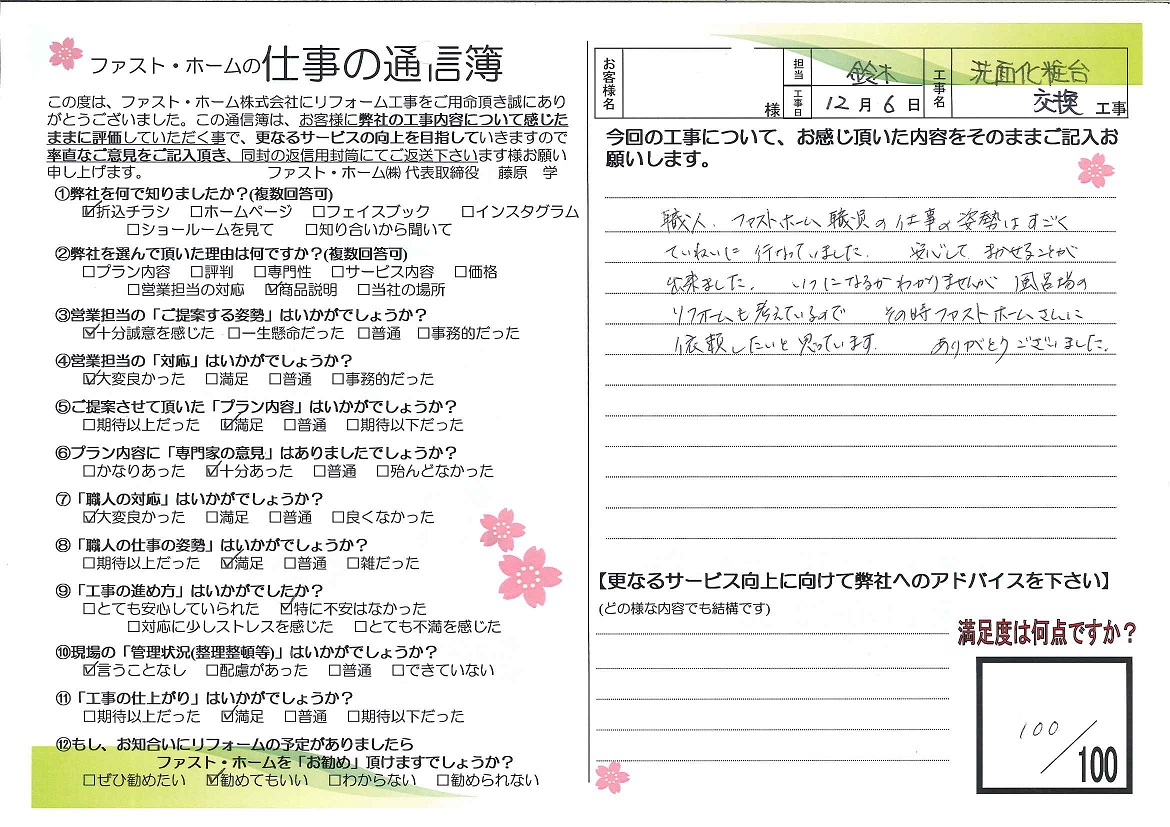 ファスト・ホームの仕事の通信簿
この度は、ファスト・ホーム株式会社にリフォーム工事をご用命頂き誠にあり
がとうございました。この通信簿は、お客様に弊社の工事内容について感じた
ままに評価していただく事で、更なるサービスの向上を目指していきますので
率直なご意見をご記入頂き、同封の返信用封筒にてご返送下さいます様お願い
申し上げます。 ファスト・ホーム㈱ 代表取締役 藤原 学
①弊社を何で知りましたか？(複数回答可)
☑折込チラシ □ホームページ □フェイスブック □インスタグラム
□ショールームを見て □知り合いから聞いて
②弊社を選んで頂いた理由は何ですか？(複数回答可)
□プラン内容 □評判 □専門性 □サービス内容 □価格
□営業担当の対応 ☑商品説明 □当社の場所
③営業担当の「ご提案する姿勢」はいかがでしょうか？
☑十分誠意を感じた □一生懸命だった □普通 □事務的だった
④営業担当の「対応」はいかがでしょうか？
☑大変良かった □満足 □普通 □事務的だった
⑤ご提案させて頂いた「プラン内容」はいかがでしょうか？
□期待以上だった ☑満足 □普通 □期待以下だった
⑥プラン内容に「専門家の意見」はありましたでしょうか？
□かなりあった ☑十分あった □普通 □殆んどなかった
⑦「職人の対応」はいかがでしょうか？
☑大変良かった □満足 □普通 □良くなかった
⑧「職人の仕事の姿勢」はいかがでしょうか？
□期待以上だった ☑満足 □普通 □雑だった
⑨「工事の進め方」はいかがでしたか？
□とても安心していられた ☑特に不安はなかった
□対応に少しストレスを感じた □とても不満を感じた
⑩現場の「管理状況(整理整頓等)」はいかがでしょうか？
☑言うことなし □配慮があった □普通 □できていない
⑪「工事の仕上がり」はいかがでしょうか？
□期待以上だった ☑満足 □普通 □期待以下だった
⑫もし、お知合いにリフォームの予定がありましたら
ファスト・ホームを「お勧め」頂けますでしょうか？
□ぜひ勧めたい ☑勧めてもいい □わからない □勧められない
お客様名 様 担当 鈴木 工事日 12月6日 工事名 洗面化粧台 交換 工事
今回の工事について、お感じ頂いた内容をそのままご記入お
願いします。
職人、ファストホーム職員の仕事の姿勢はすごく
ていねいに行なっていました。 安心してまかせることが
出来ました。 いつになるかわかりませんが風呂場の
リフォームも考えているので その時ファストホームさんに
依頼したいと思っています。 ありがとうございました。
【更なるサービス向上に向けて弊社へのアドバイスを下さい】
(どの様な内容でも結構です)
満足度は何点ですか？
100/100